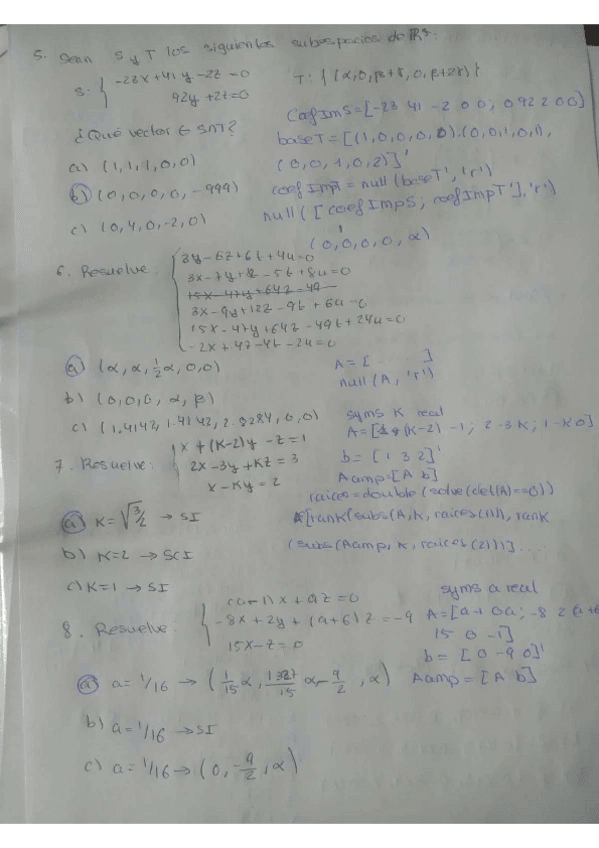 5. Sean S y T los siguientes subespacios de R5:
S: { -23x+41y-2z=0
92y+2z=0
T: {(α,0,β+γ,0,β+2γ)}
¿Qué vector ∈ S∩T?
CoefImS=[-23 41 -2 0 0; 0 92 2 0 0]
a) (1,1,1,0,0)
baseT=[(1,0,0,0,0).(0,0,1,0,1),
(0,0,1,0,2)]'
b) (0,0,0,0,-999)
coefImpT=null(baseT','r')'
c) (0,4,0,-2,0)
null([coefImpS; coefImpT'],'r')
(0,0,0,0,α)
6. Resuelve.
3y-6z+6t+4u=0
3x-7y+8z-5t+8u=0
15x-47y+64z-49
3x-9y+12z-9t+6u=0
15x-47y+64z-49t+24u=0
-2x+4z-4t-2u=0
a) (α,α,½α,0,0)
A=[ ... ]
null(A,'r')
b) (0,0,0,α,β)
c) (1.4142,1.4142,2.8284,0,0)
syms K real
A=[1 (K-2) -1; 2 -3 K; 1 -K 0]
7. Resuelve:
x+(K-2)y-z=1
2x-3y+Kz=3
x-Ky=2
b=[1 3 2]'
Aamp=[A b]
raices=double(solve(det(A)==0))
a) K=√3/2 → SI
[rank(subs(A,K,raices(1)),rank
b) K=2 → SCI
(subs(Aamp,K,raices(2)))]....
c) K=1 → SI
8. Resuelve.
(a-1)x+az=0
-8x+2y+(a+6)z=-9
15x-z=0
syms a real
A=[a-1 0 a; -8 2 a+6
15 0 -1]
b=[0 -9 0]'
a) a=1/16 → (1/15 α, 1327/15 α-9/2, α)
Aamp=[A b]
b) a=1/16 → SI
c) a=1/16 → (0,-9/2,α)